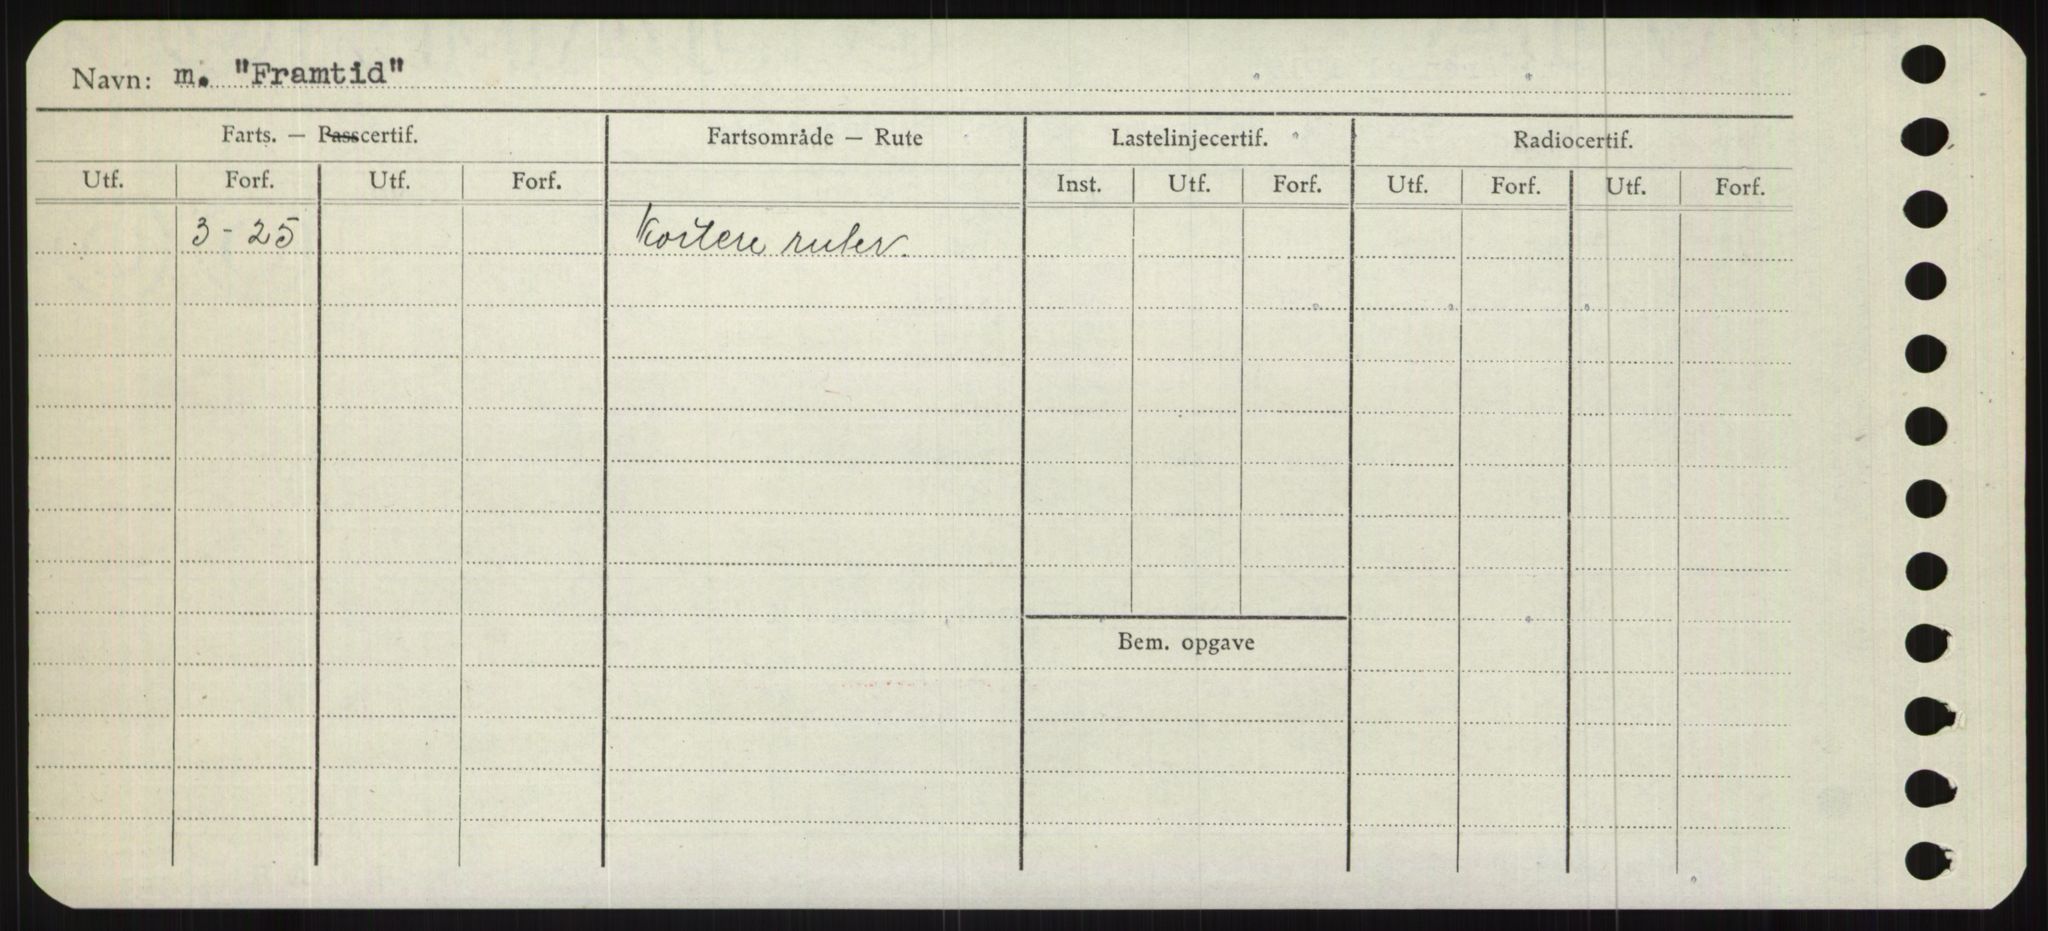 Navn: m. "Framtid"
Farts. — Passcertif. Fartsområde — Rute Lastelinjecertif. Radiocertif.
Utf. Forf. Utf. Forf. Inst. Utf. Forf. Utf. Forf. Utf. Forf.
3-25 Kortere ruter.
Bem. opgave